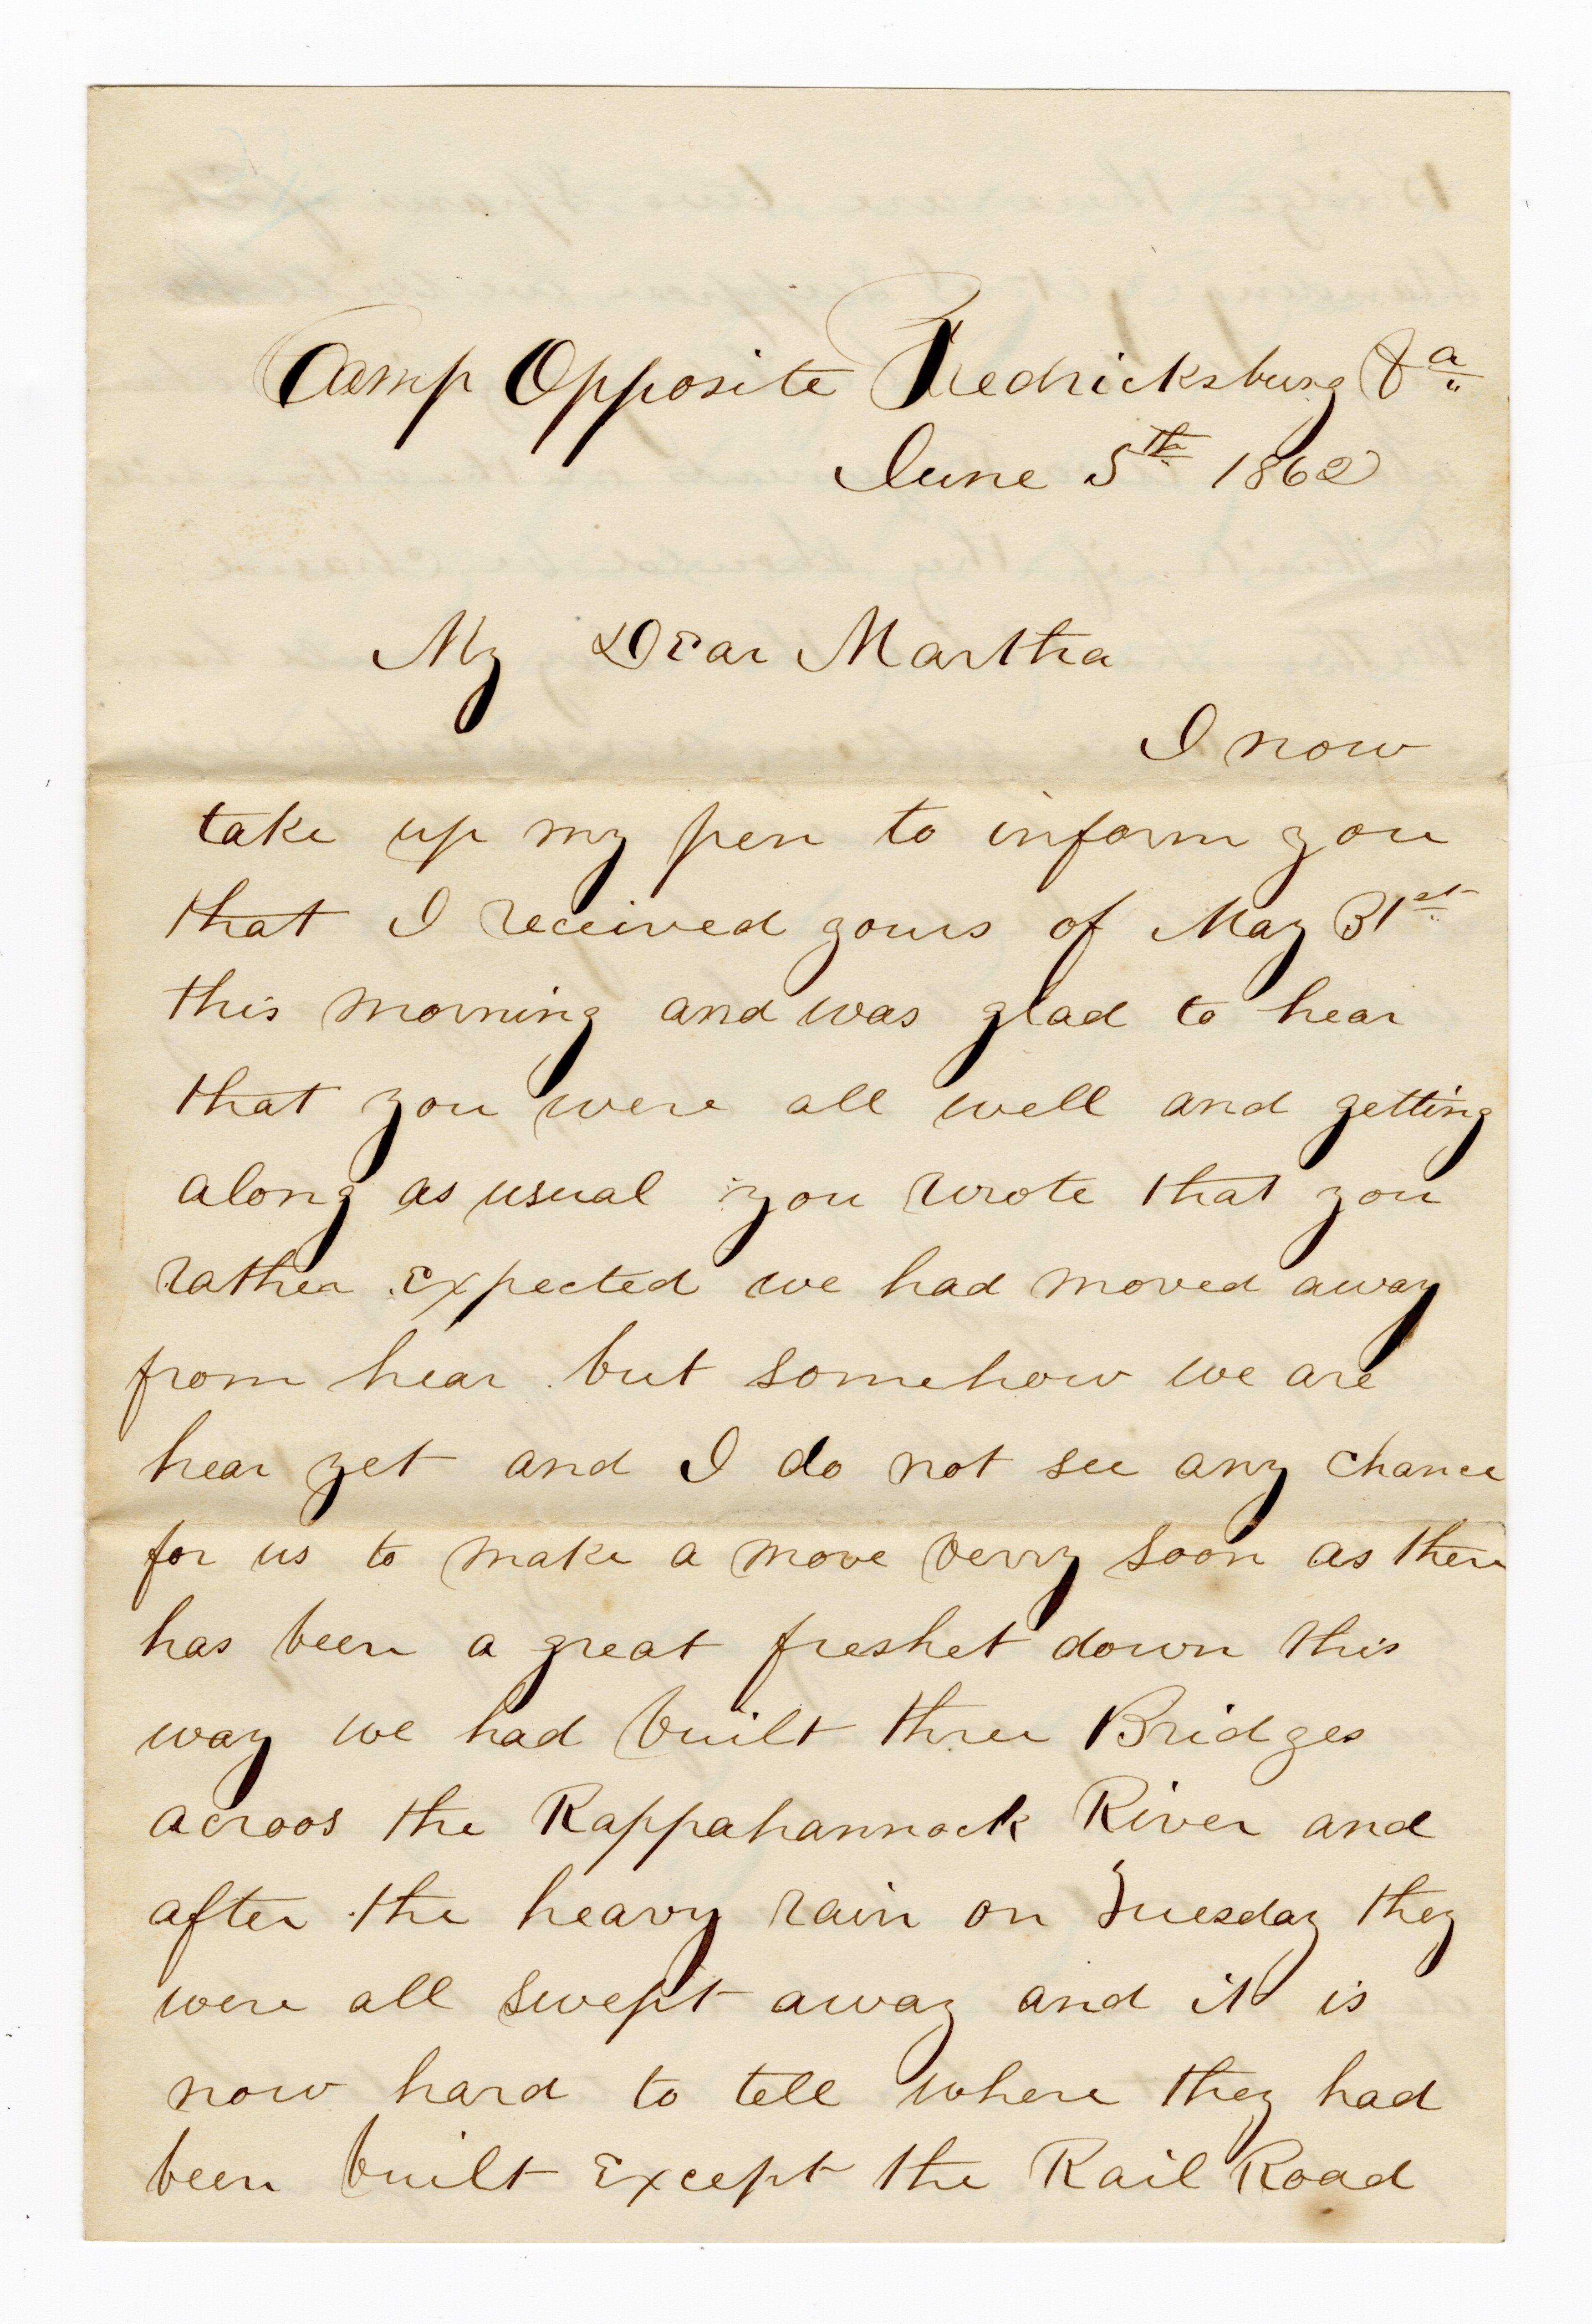 Camp Opposite Fredricksburg Va
June 5th 1862
My Dear Martha
I now
take up my pen to inform you
that I received yours of May 31st
this morning and was glad to hear
that you were all well and getting
along as usual you wrote that you
rather expected we had moved away
from hear but somehow we are
hear yet and I do not see any chance
for us to make a move verry soon as there
has been a great freshet down this
way we had built three Bridges
acroos the Rappahannock River and
after the heavy rain on Tuesday they
were all swept away and it is
now hard to tell where they had
been built Except the Rail Road